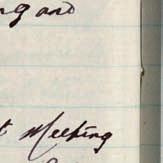 ng and
t Meeting